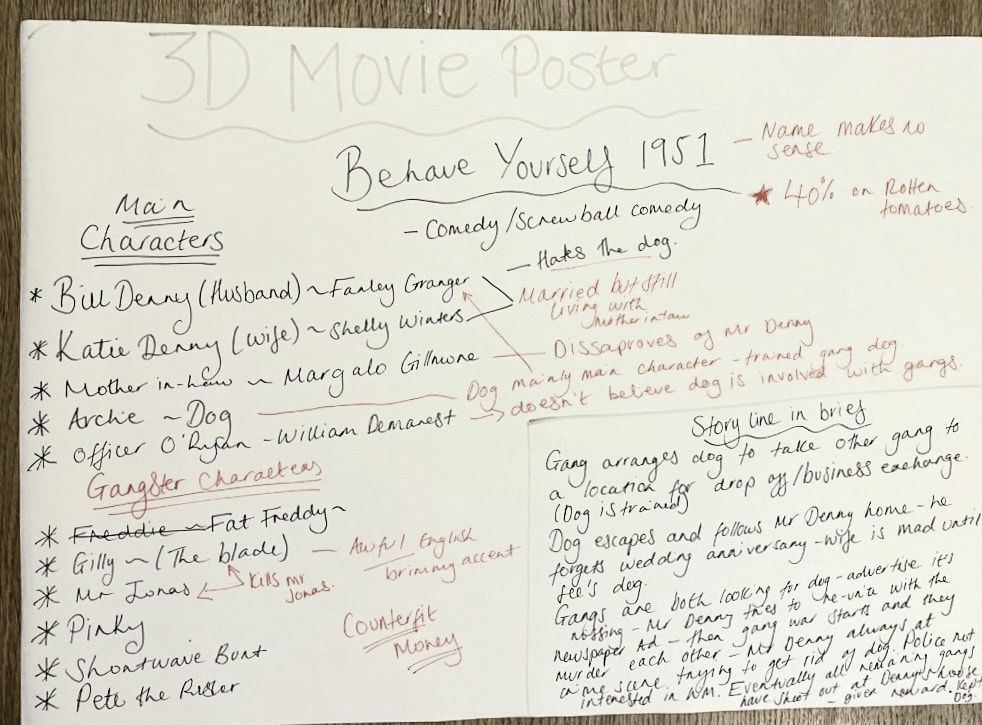 3D Movie Poster
Behave Yourself 1951
— Name makes no
sense.
★ 40% on Rotten
tomatoes.
– Comedy/Screwball comedy
Main
Characters
— Hates the dog.
* Bill Denny (Husband) ~ Fanley Granger
* Katie Denny (wife) ~ Shelly Winters
Married but still
living with
Mother in law
* Mother in-Law ~ Margalo Gillmone — Dissaproves of Mr Denny
* Archie ~ Dog — Dog mainly main character - trained gang dog
* Officer O'Ryan - William Demanest → doesn't believe dog is involved with gangs.
Gangster Characters
* Freddie ~ Fat Freddy ~
* Gilly ~ (The blade) — Awful English
brimmy accent
* Mr Jonas
Kills mr
Jonas.
* Pinky
* Shontwave Bunt
* Pete the
Counterfit
Money
Story line in brief
Gang arranges dog to take other gang to
a location for drop off/business exchange.
(Dog is trained)
Dog escapes and follows Mr Denny home - he
forgets wedding anniversary - wife is mad until
see's dog.
Gangs are both looking for dog - advertise it's
missing - Mr Denny tries to re-unite with the
newspaper Ad - then gang war starts and they
murder each other - Mr Denny always at
crime scene. trying to get rid of dog. Police not
interested in him. Eventually all remaining gangs
have shoot out at Denny's house
- given reward. Kept
Dog.